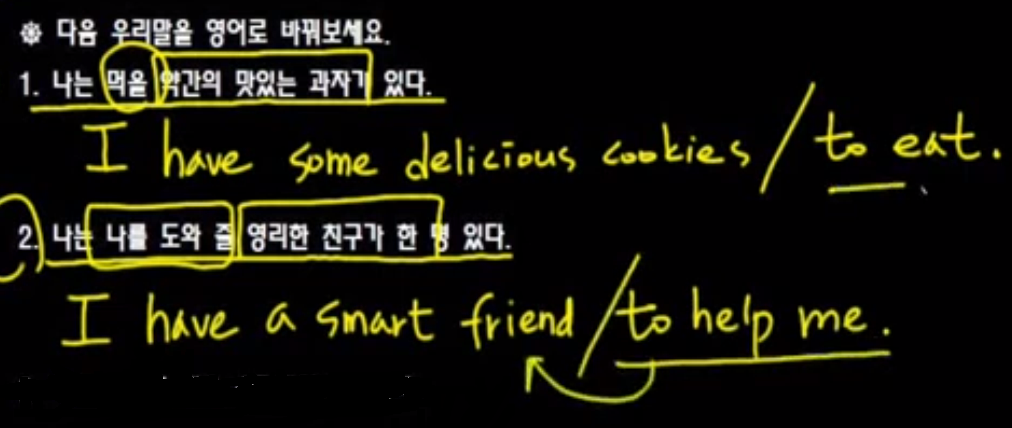 ❁ 다음 우리말을 영어로 바꿔보세요.
1. 나는 먹을 약간의 맛있는 과자가 있다.
I have some delicious cookies / to eat.
2. 나는 나를 도와 줄 영리한 친구가 한 명 있다.
I have a smart friend / to help me.